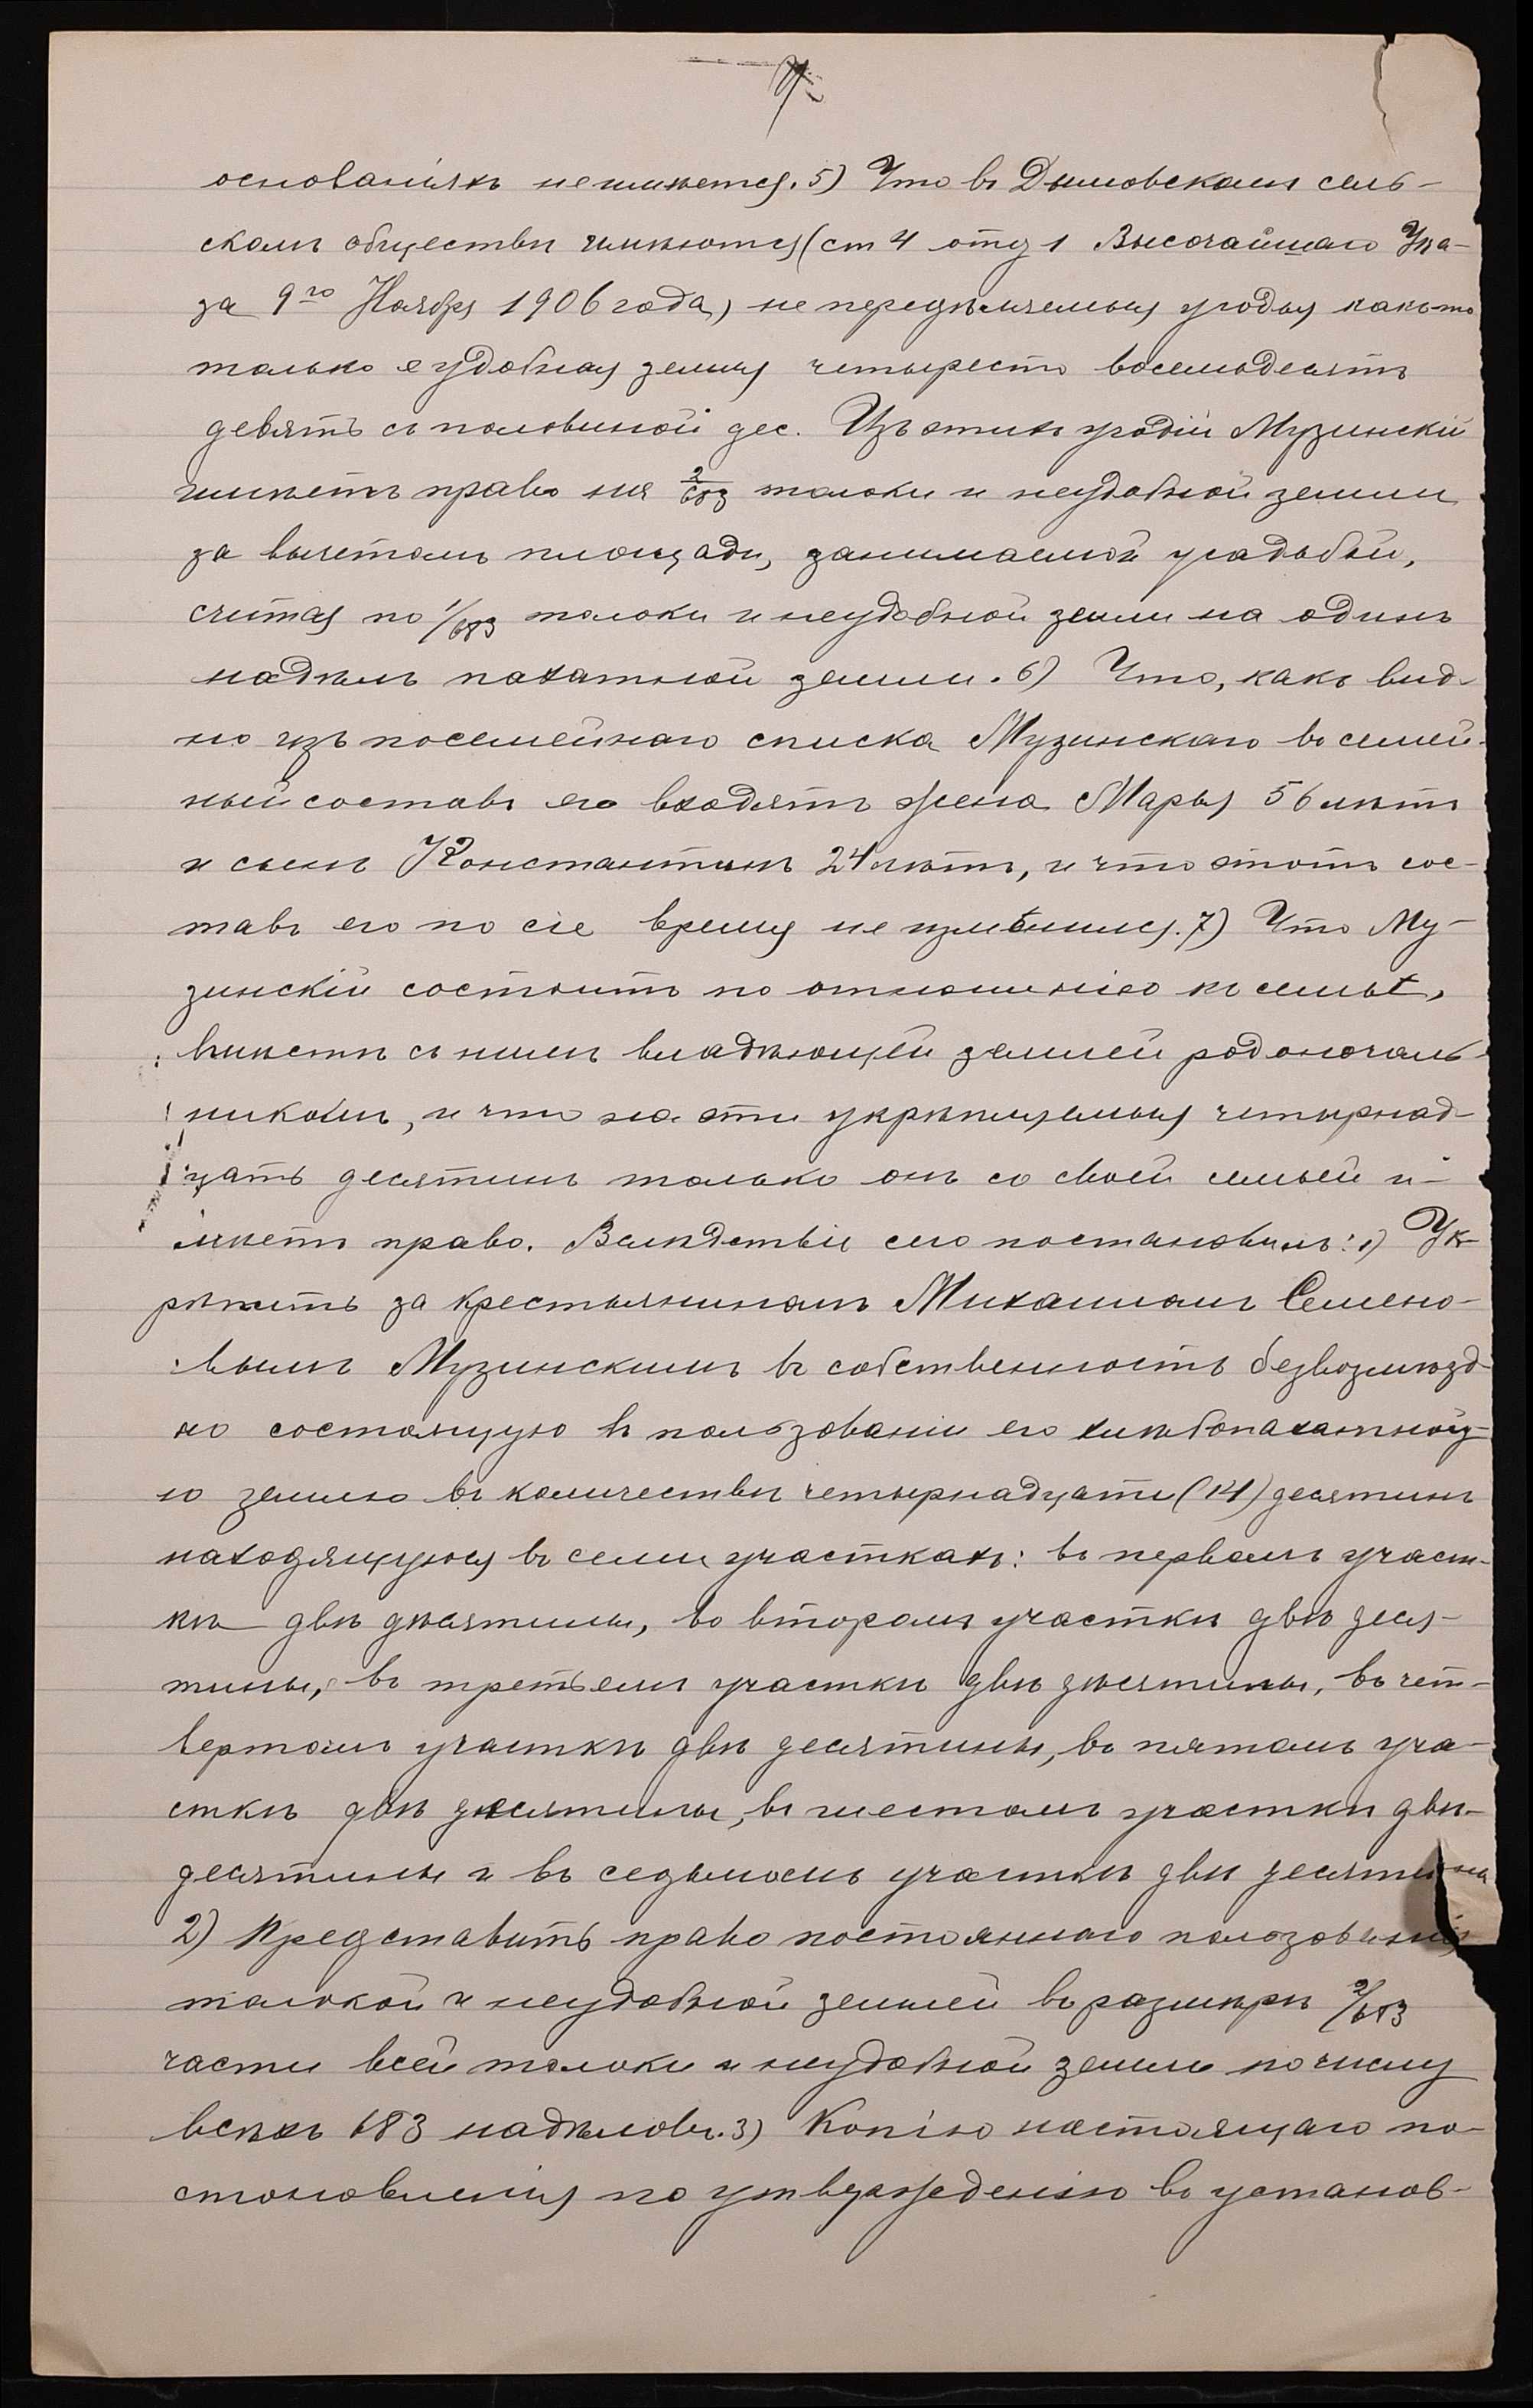 основаніяхъ неимѣется. 5) Что въ Дымовскомъ сель-
скомъ обществѣ имѣются (ст 4 отд 1 Высочайшаго Ука-
за 9го Ноября 1906 года) не передѣляемыя угодья какъ-то
только неудобная земля четыреста восемьдесятъ
девять съ половиной дес. Изъ этихъ угодій Музинскій
имѣетъ право на 2/683 толоки и неудобной земли
за вычетомъ площади, занимаемой усадьбой,
считая по 1/683 толоки и неудобной земли на одинъ
надѣлъ пахатной земли. 6) Что, какъ вид-
но изъ посемейнаго списка Музинскаго въ семей-
ный составъ его входятъ жена Марья 56 лѣтъ
и сынъ Константинъ 24 лѣтъ, и что этотъ сос-
тавъ его по сіе время не измѣнился. 7) Что Му-
зинскій состоитъ по отношенію къ семьѣ,
вмѣстѣ съ нимъ владѣющей землей родоначаль-
никомъ, и что на эти укрѣпляемыя четырнад-
цать десятинъ только онъ со своей семьей и-
мѣетъ право. Вслѣдствіе сего постановилъ: 1) Ук-
рѣпить за крестьяниномъ Михаиломъ Семено-
вымъ Музинскимъ въ собственность безвозмѣзд-
но состоящую въ пользованіи его хлѣбопахатную-
ю землю въ количествѣ четырнадцати (14) десятинъ
находящуюся въ семи участкахъ: въ первомъ участ-
кѣ двѣ дѣсятины, во второмъ участкѣ двѣ деся-
тины, въ третьемъ участкѣ двѣ дѣсятины, въ чет-
вертомъ участкѣ двѣ десятины, въ пятомъ уча-
сткѣ двѣ десятины, въ шестомъ участкѣ двѣ-
десятины и въ седьмомъ участкѣ двѣ десятины
2) Представить право постояннаго пользованія
толокой и неудобной землей въ размѣрѣ 2/683
части всей толоки и неудобной земли по числу
всѣхъ 683 надѣловъ. 3) Копію настоящаго по-
становленія по утвержденію въ установ-